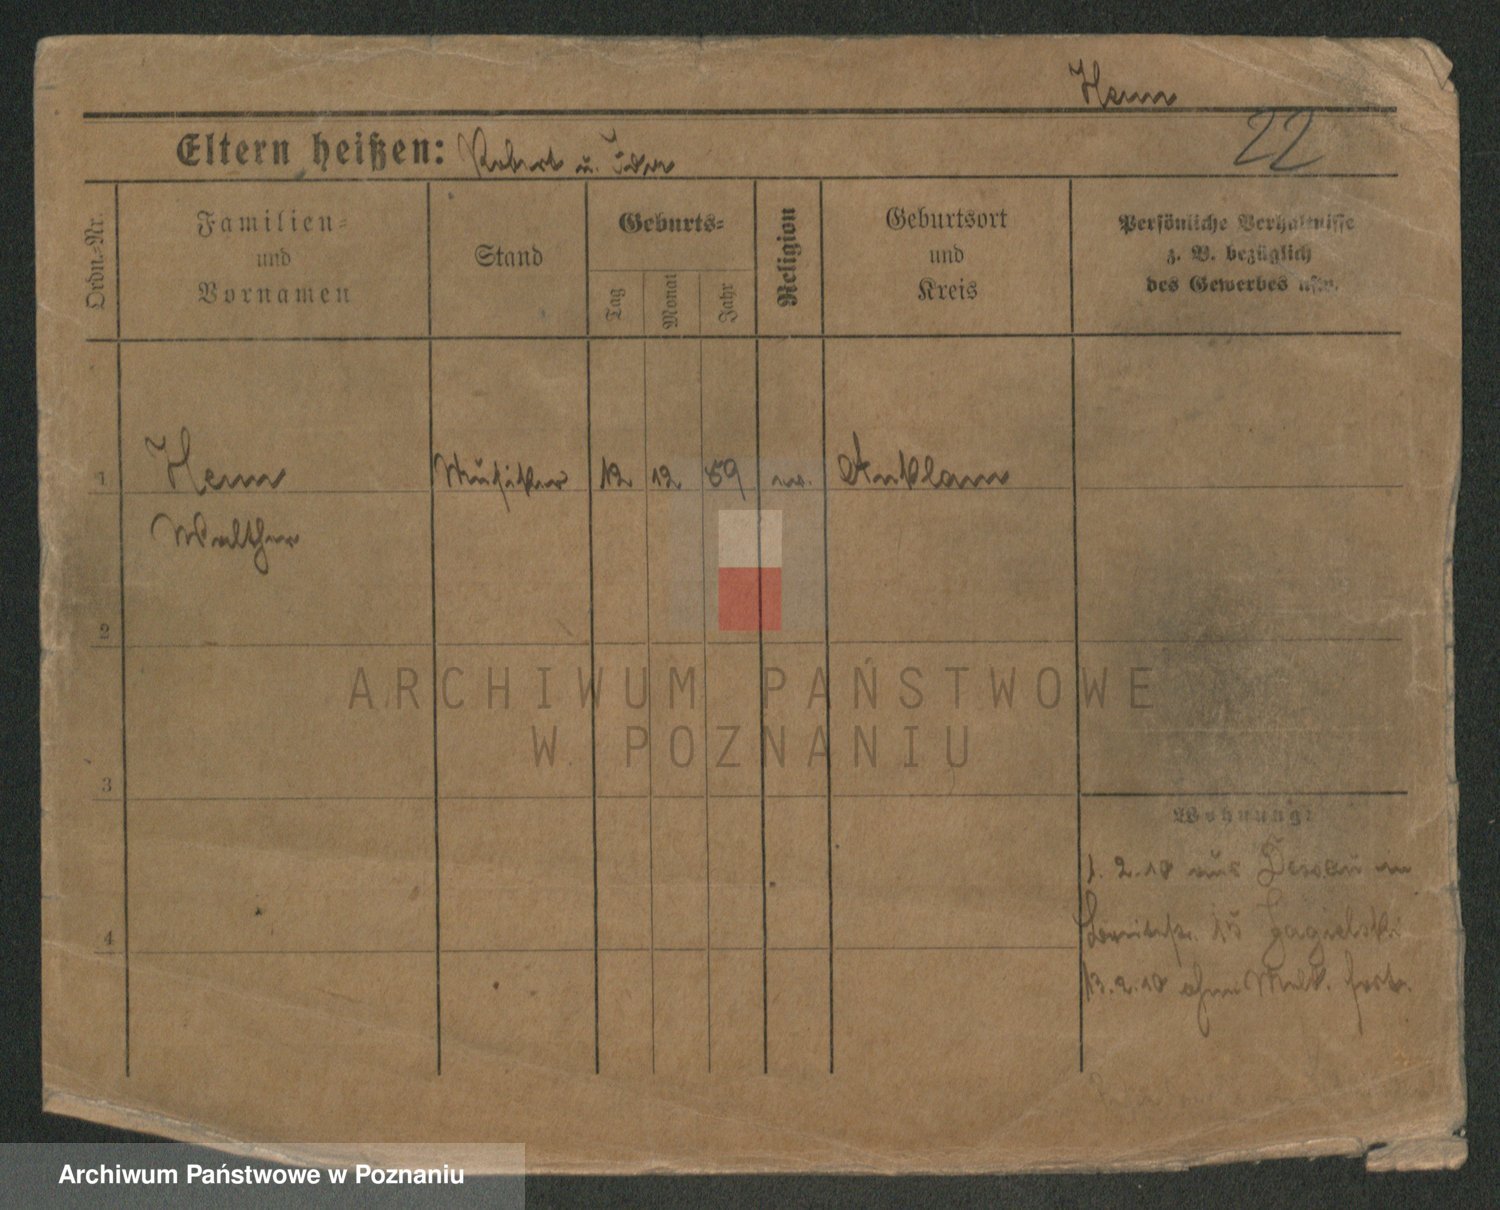 Henn
22
Eltern heißen: Robert u. Ida
Ordn.-Nr.
Familien-
und
Vornamen
Stand
Geburts-
Tag
Monat
Jahr
Religion
Geburtsort
und
Kreis
Persönliche Verhältnisse
z. B. bezüglich
des Gewerbes usw.
1 Henn Musiker 12 12 89 ev. Anklam
Walther
2
ARCHIWUM PAŃSTWOWE
W POZNANIU
3
Wohnung:
1. 2. 10 aus Dessau in
15 Jagielski
4
13. 2. 10 ohne Meld. fort.
Archiwum Państwowe w Poznaniu